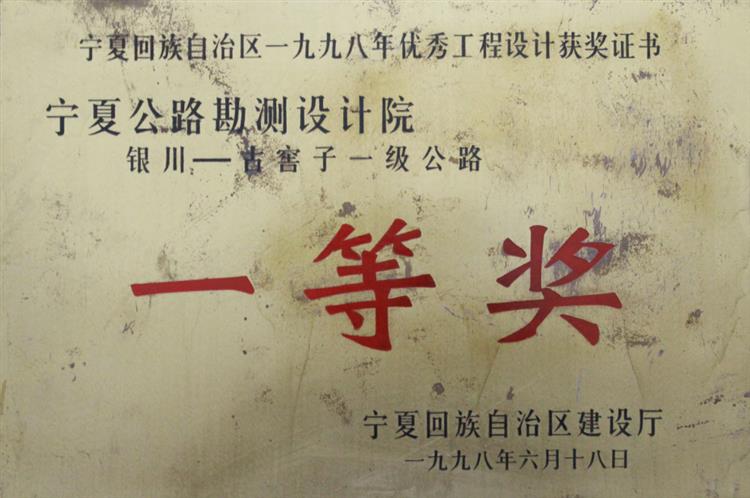 宁夏回族自治区一九九八年优秀工程设计获奖证书
宁夏公路勘测设计院
银川—古窖子一级公路
一等奖
宁夏回族自治区建设厅
一九九八年六月十八日